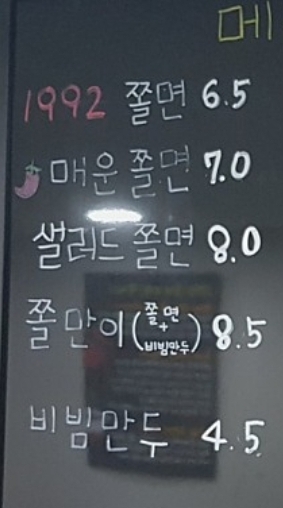 메
1992 쫄면 6.5
매운 쫄면 7.0
샐러드 쫄면 8.0
쫄만이(쫄면+비빔만두) 8.5
비빔만두 4.5